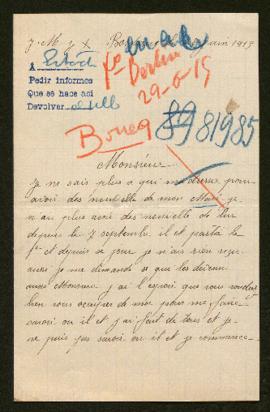 J. M. y X Bo juin 1915
A
Pedir informes
Que se hace así
Devolver
Berlin
29-6-15
Boucq 81985
Monsieur
Je ne sais plus a qui m'adresser pour
avoir des nouvelle de mon Mari je
n'ai plus avoir des nouvelle de lui
depuis le 7 septembre il et partie le
1er et depuis ce jour je n'ai rien reçu
aussi je me demande se que les devenu
aussi Monsieur j'ai l'espoir que vous voudrez
bien vous occuper de moi pour me faire
savoir ou il et j'ai fait de tous et je
ne puis pas savoir ou il et je commence